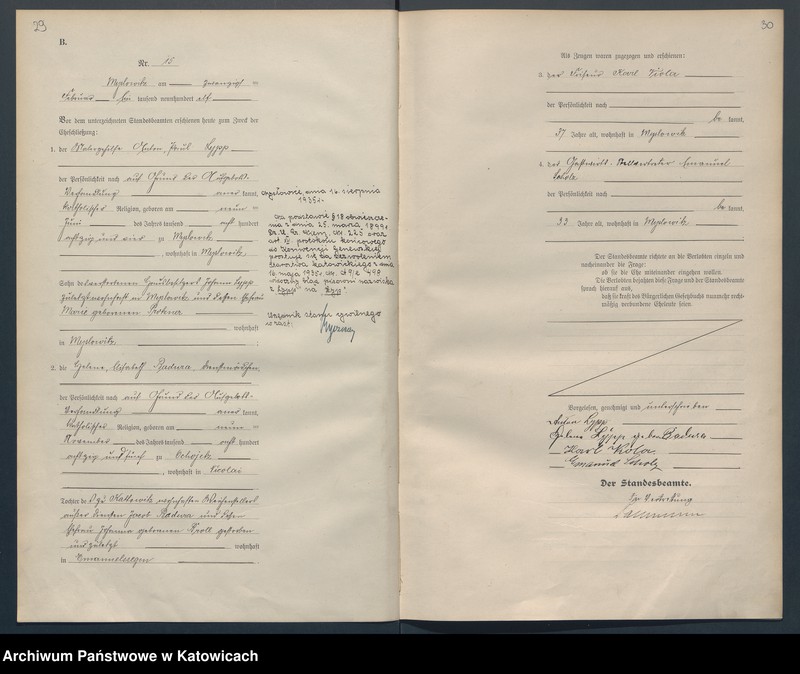 29
B.
Nr. 15
Myslowitz am zwanzigsten
Februar tausend neunhundert elf
Vor dem unterzeichneten Standesbeamten erschienen heute zum Zweck der
Eheschließung:
1. der Anton Paul Lypp
der Persönlichkeit nach auf Grund des Aufgebots-
verhandlung anerkannt,
katholischer Religion, geboren am neunten
Juni des Jahres tausend acht hundert
achtzig und vier zu Myslowitz
, wohnhaft in Myslowitz
Sohn des verstorbenen Johann Lypp
zuletzt wohnhaft in Myslowitz und dessen Ehefrau
Marie geborenen
wohnhaft
in Myslowitz
2. die Helene Radwa
der Persönlichkeit nach auf Grund des Aufgebots-
verhandlung anerkannt,
katholischer Religion, geboren am neunten
November des Jahres tausend acht hundert
achtzig und fünf zu Ochojetz
, wohnhaft in Nicolai
Tochter des zu Kattowitz wohnhaften
außer Diensten Jacob Radwa und dessen
Ehefrau Johanna geborenen Kroll gestorben
und zuletzt wohnhaft
in Emanuelssegen
Mysłowice, dnia 16. sierpnia
1935r.
Na podstawie § 18 obwieszcze-
nia z dnia 25. marca 1899r
Dz. U. Rz. Niem. str. 225 oraz
art. protokołu końcowego
do Konwencji Genewskiej
prostuje się za zezwoleniem
Starostwa Katowickiego z dnia
16. maja 1935r.
błąd pisowni nazwiska
z "Lypp" na "Lyp".
Urzędnik stanu cywilnego
w zast.
30
Als Zeugen waren zugezogen und erschienen:
3. der Karl Kiola
der Persönlichkeit nach
be kannt,
57 Jahre alt, wohnhaft in Myslowitz
4. der Gastwirt-Stellvertreter Emanuel
Scholz
der Persönlichkeit nach
be kannt,
33 Jahre alt, wohnhaft in Myslowitz
Der Standesbeamte richtete an die Verlobten einzeln und
nacheinander die Frage:
ob sie die Ehe miteinander eingehen wollen.
Die Verlobten bejahten diese Frage und der Standesbeamte
sprach hierauf aus,
daß sie kraft des Bürgerlichen Gesetzbuchs nunmehr recht-
mäßig verbundene Eheleute seien.
Vorgelesen, genehmigt und unterschrieben
Anton Lypp
Helene Lypp geb. Radwa
Karl Kiola
Emanuel Scholz
Der Standesbeamte.
In Vertretung
Archiwum Państwowe w Katowicach